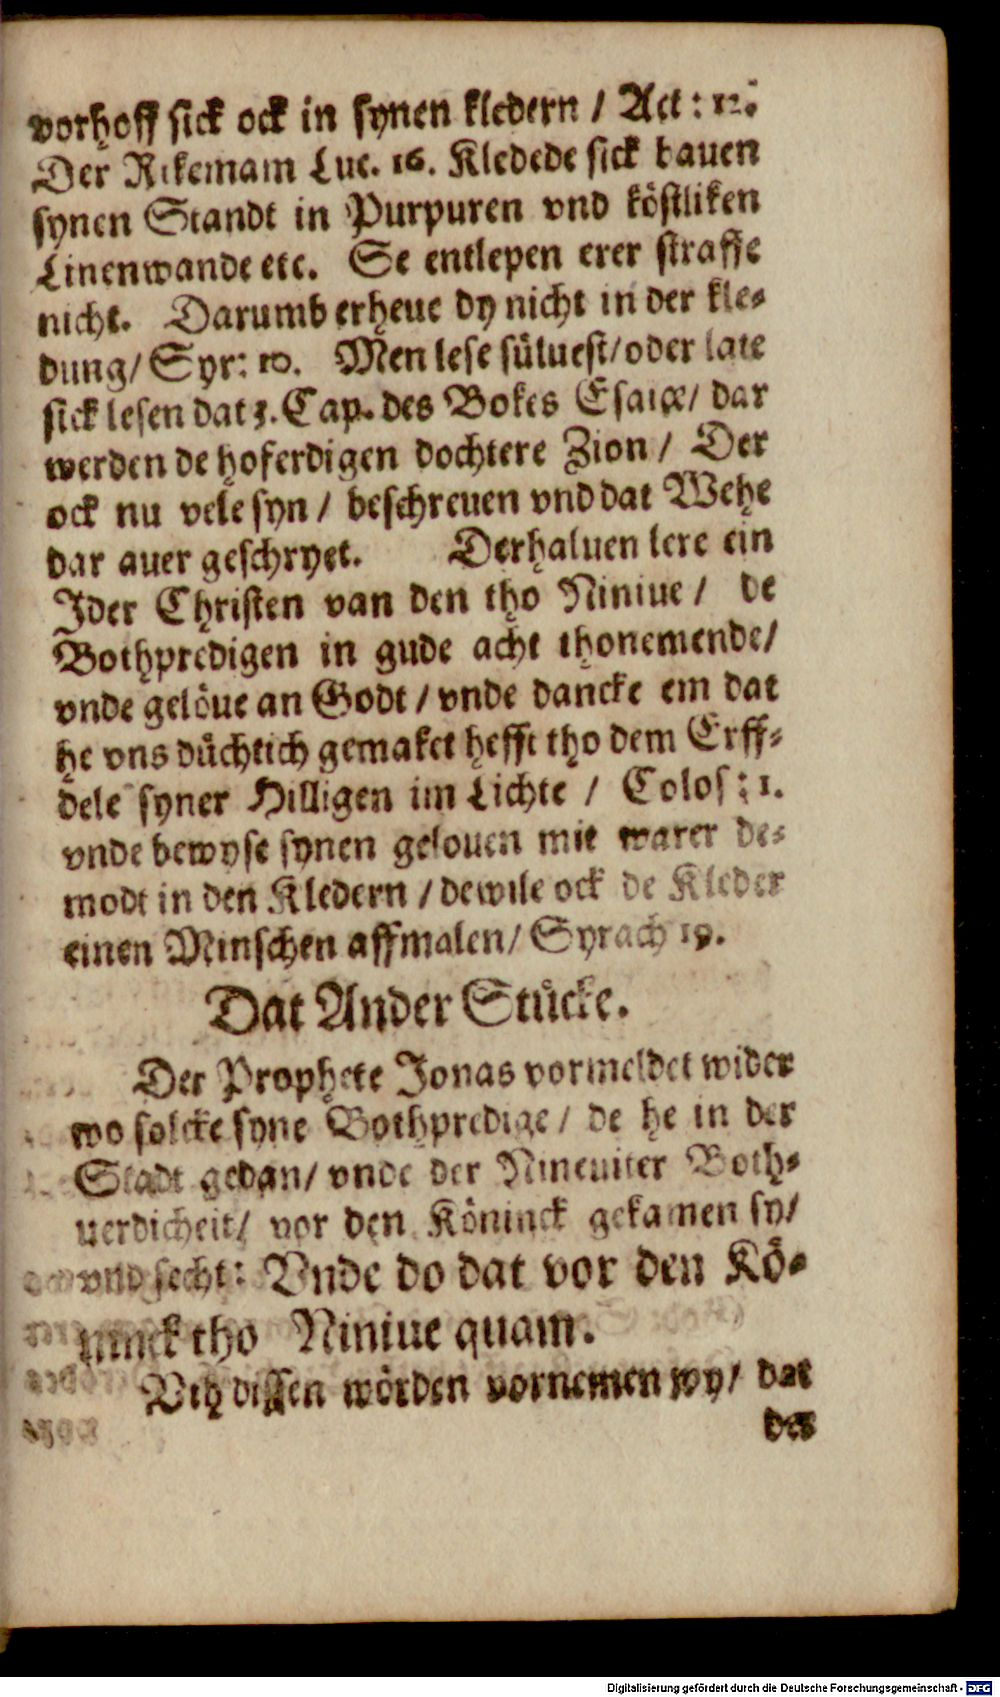 vorhoff sick ock in synen kledern / Act: 12.
Der Rikemam Luc. 16. Kledede sick bauen
synen Standt in Purpuren vnd köstliken
Linenwande etc. Se entlepen erer straffe
nicht. Darumb erheue dy nicht in der kle-
dung/ Syr: 10. Men lese süluest/ oder late
sick lesen dat 3. Cap. des Bokes Esaiæ/ dar
werden de hoferdigen dochtere Zion / Der
ock nu vele syn / beschreuen vnd dat Wehe
dar auer geschryet. Derhaluen lere ein
Jder Christen van den tho Niniue / de
Bothpredigen in gude acht thonemende/
vnde gelöue an Godt / vnde dancke em dat
he vns düchtich gemaket hefft tho dem Erff-
dele syner Hilligen im Lichte / Colos: 1.
vnde bewyse synen gelouen mit warer de-
modt in den Kledern / dewile ock de Kleder
einen Minschen affmalen/ Syrach 19.
Dat Ander Stücke.
Der Prophete Jonas vormeldet wider
wo solcke syne Bothpredige / de he in der
Stadt gedan/ vnde der Nineuiter Both-
uerdicheit/ vor den Köninck gekamen sy/
vnd secht: Vnde do dat vor den Kö-
ninck tho Niniue quam.
Vth dissen wörden vornemen wy/ dat
des
Digitalisierung gefördert durch die Deutsche Forschungsgemeinschaft - DFG